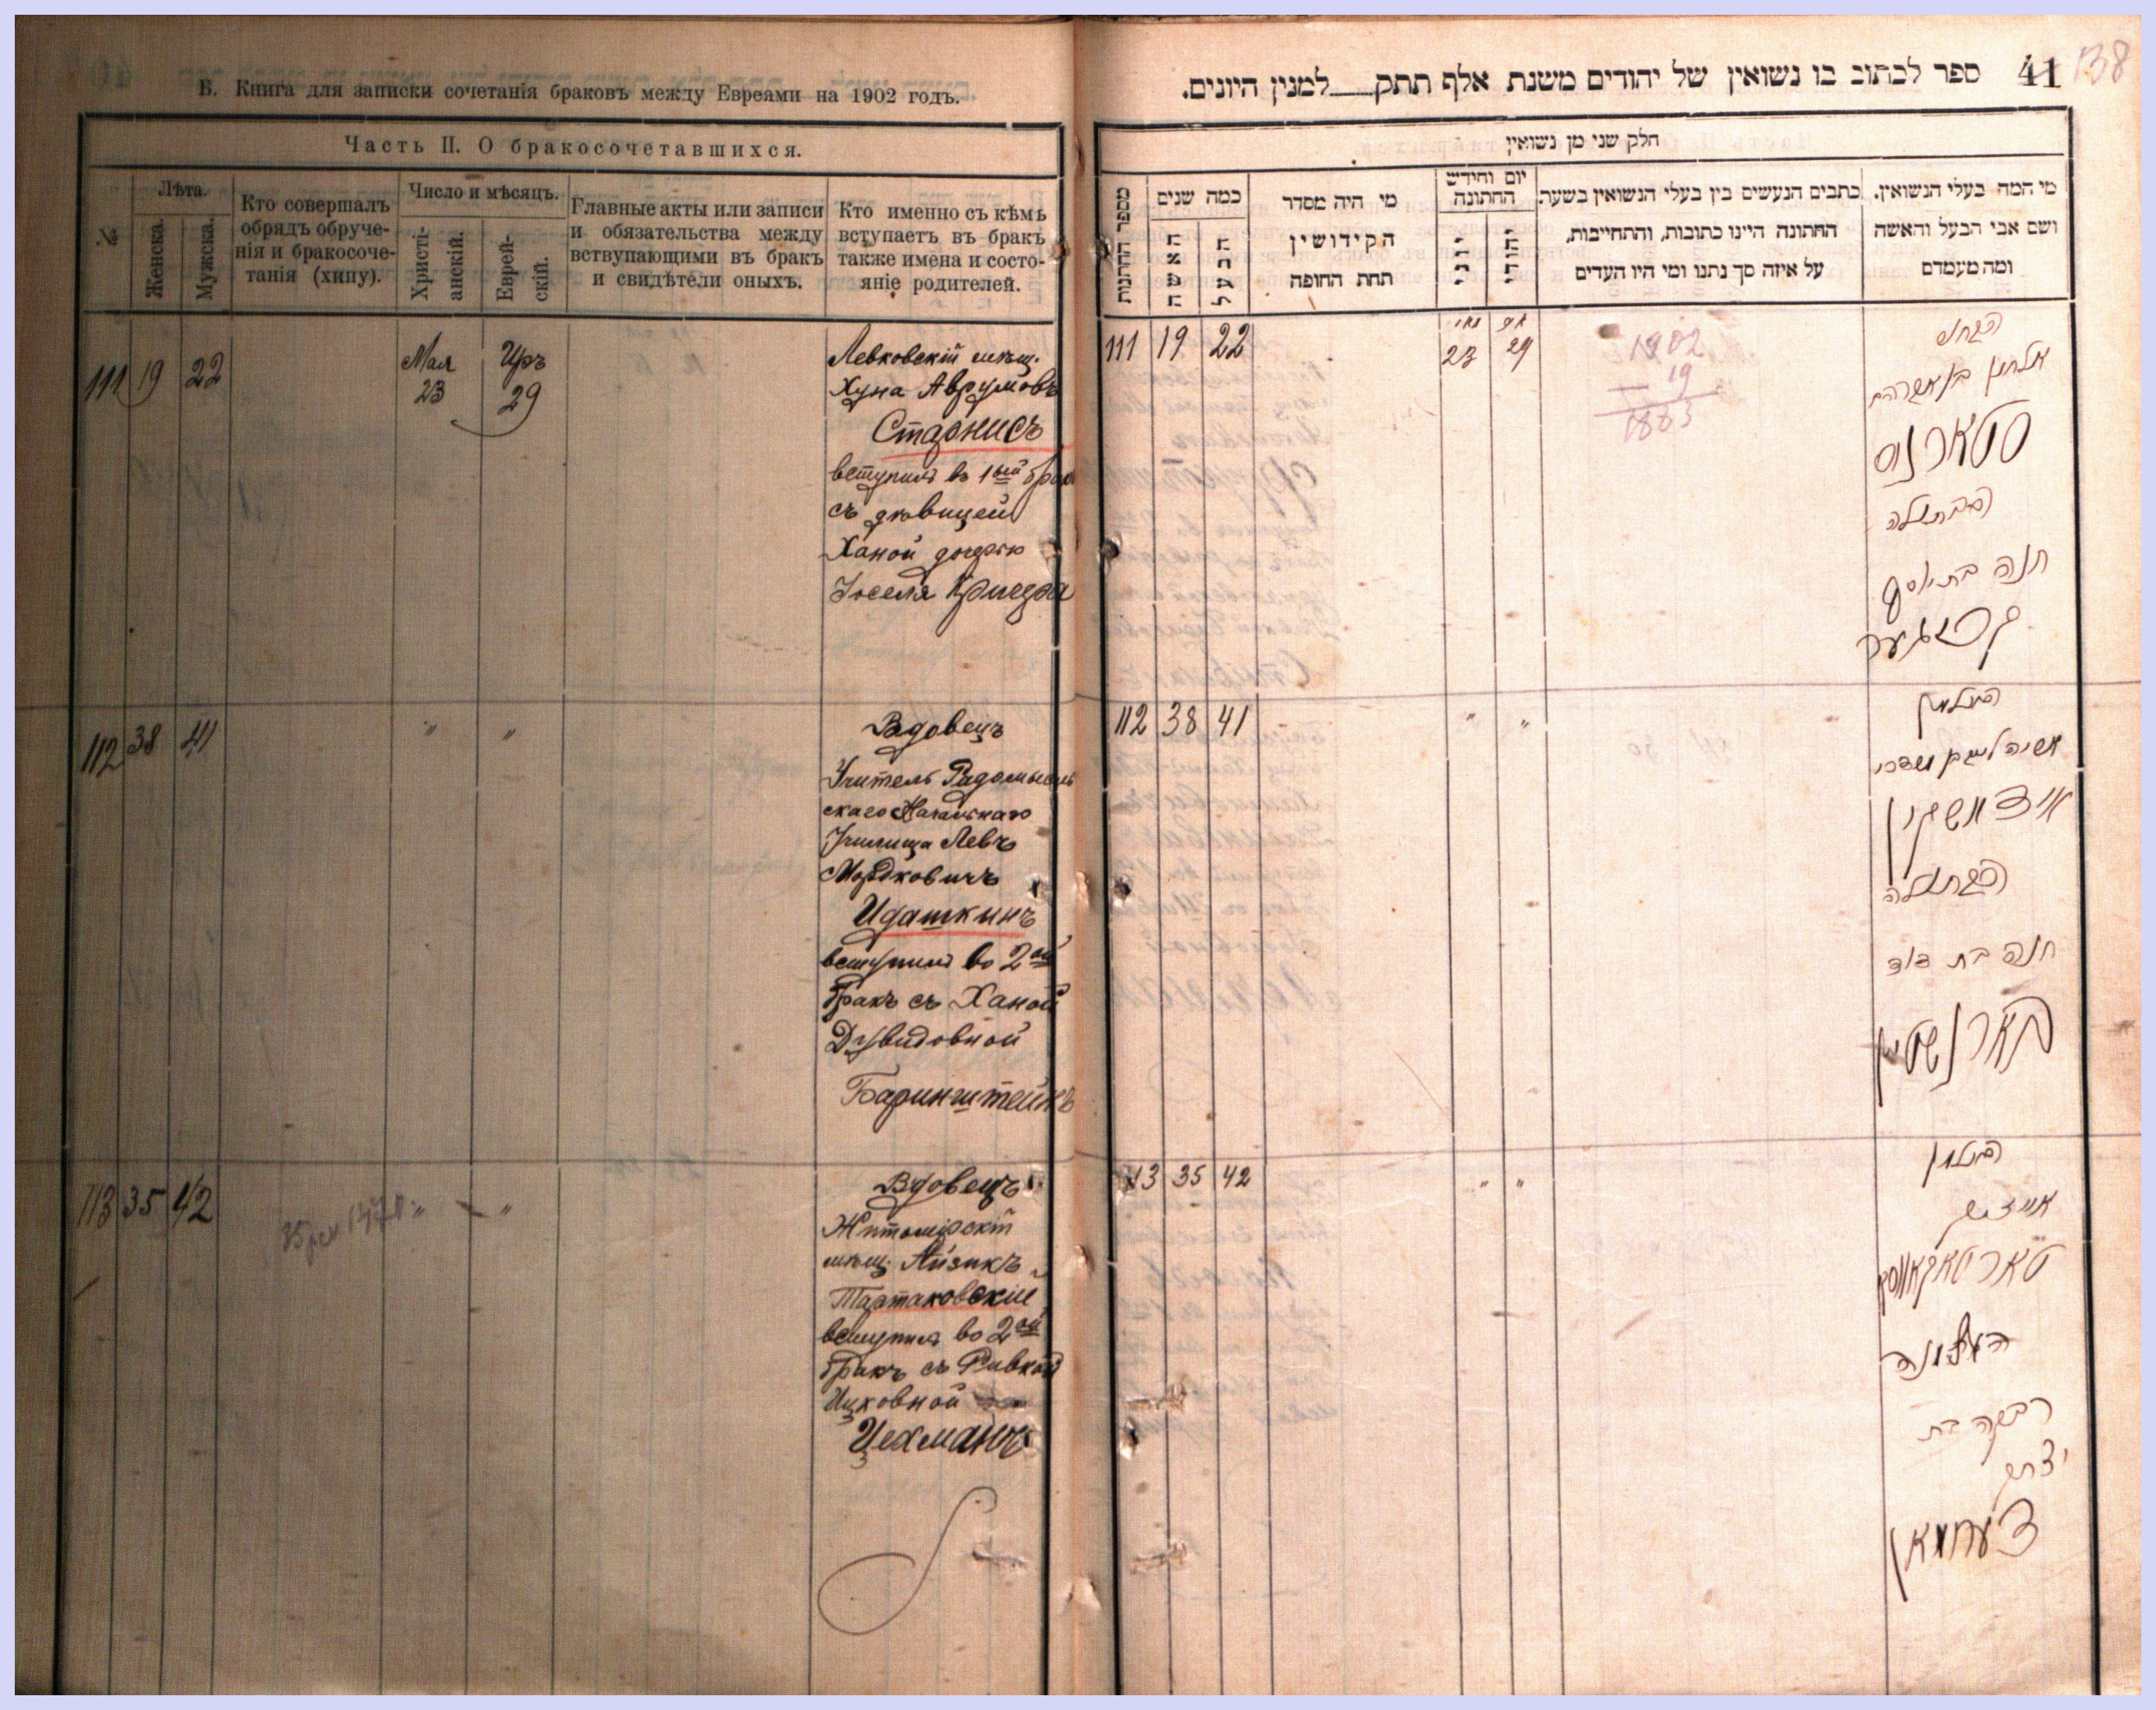 Б. Книга для записки сочетанія браковъ между Евреями на 1902 годъ.
Часть II. О бракосочетавшихся.
№
Лѣта.
Женска.
Мужска.
Кто совершалъ
обрядъ обруче-
нія и бракосоче-
танія (хипу).
Число и мѣсяцъ.
Христі-
анскій.
Еврей-
скій.
Главные акты или записи
и обязательства между
вступающими въ бракъ
и свидѣтели оныхъ.
Кто именно съ кѣмъ
вступаетъ въ бракъ
также имена и состо-
яніе родителей.
111 19 22 Мая 23 Иръ 29
Левковскій мѣщ.
Хуна Аврумовъ
Старнисъ
вступилъ въ 1ый бракъ
съ дѣвицей
Ханой дочерью
Іоселя
112 38 41 " "
Вдовецъ
Учитель Радомысль
скаго Начальнаго
Училища Левъ
Мордковичъ
Идашкинъ
вступилъ во 2ой
бракъ съ Ханой
Дувидовной
Баринштейнъ
113 35 42 " "
Вдовецъ
Житомірскій
мѣщ. Айзикъ
Тартаковскій
вступилъ во 2ой
бракъ съ Ривкой
Ицковной
Цехманъ
ספר לכתוב בו נשואין של יהודים משנת אלף תתק למנין היונים.
41 138
חלק שני מן נשואין
מספר החתונות
כמה שנים
האשה
הבעל
מי היה מסדר
הקידושין
תחת החופה
יום וחידש
החתונה
יוני
יהודי
כתבים הנעשים בין בעלי הנשואין בשעת
החתונה היינו כתובות, והתחייבות,
על איזה סך נתנו ומי היו העדים
מי המה בעלי הנשואין.
ושם אבי הבעל והאשה
ומה מעמדם
111 19 22 23 29
1902
19
1883
הבחור
אלחנן בן אברהם
סטארניס
הבתולה
חנה בת יוסף
112 38 41 " "
האלמן
אידאשקין
הבתולה
חנה בת דוד
בארנשטיין
113 35 42 " "
האלמן
אייזיק
טארטאקאווסקי
רבקה בת
יצחק
צעחמאן